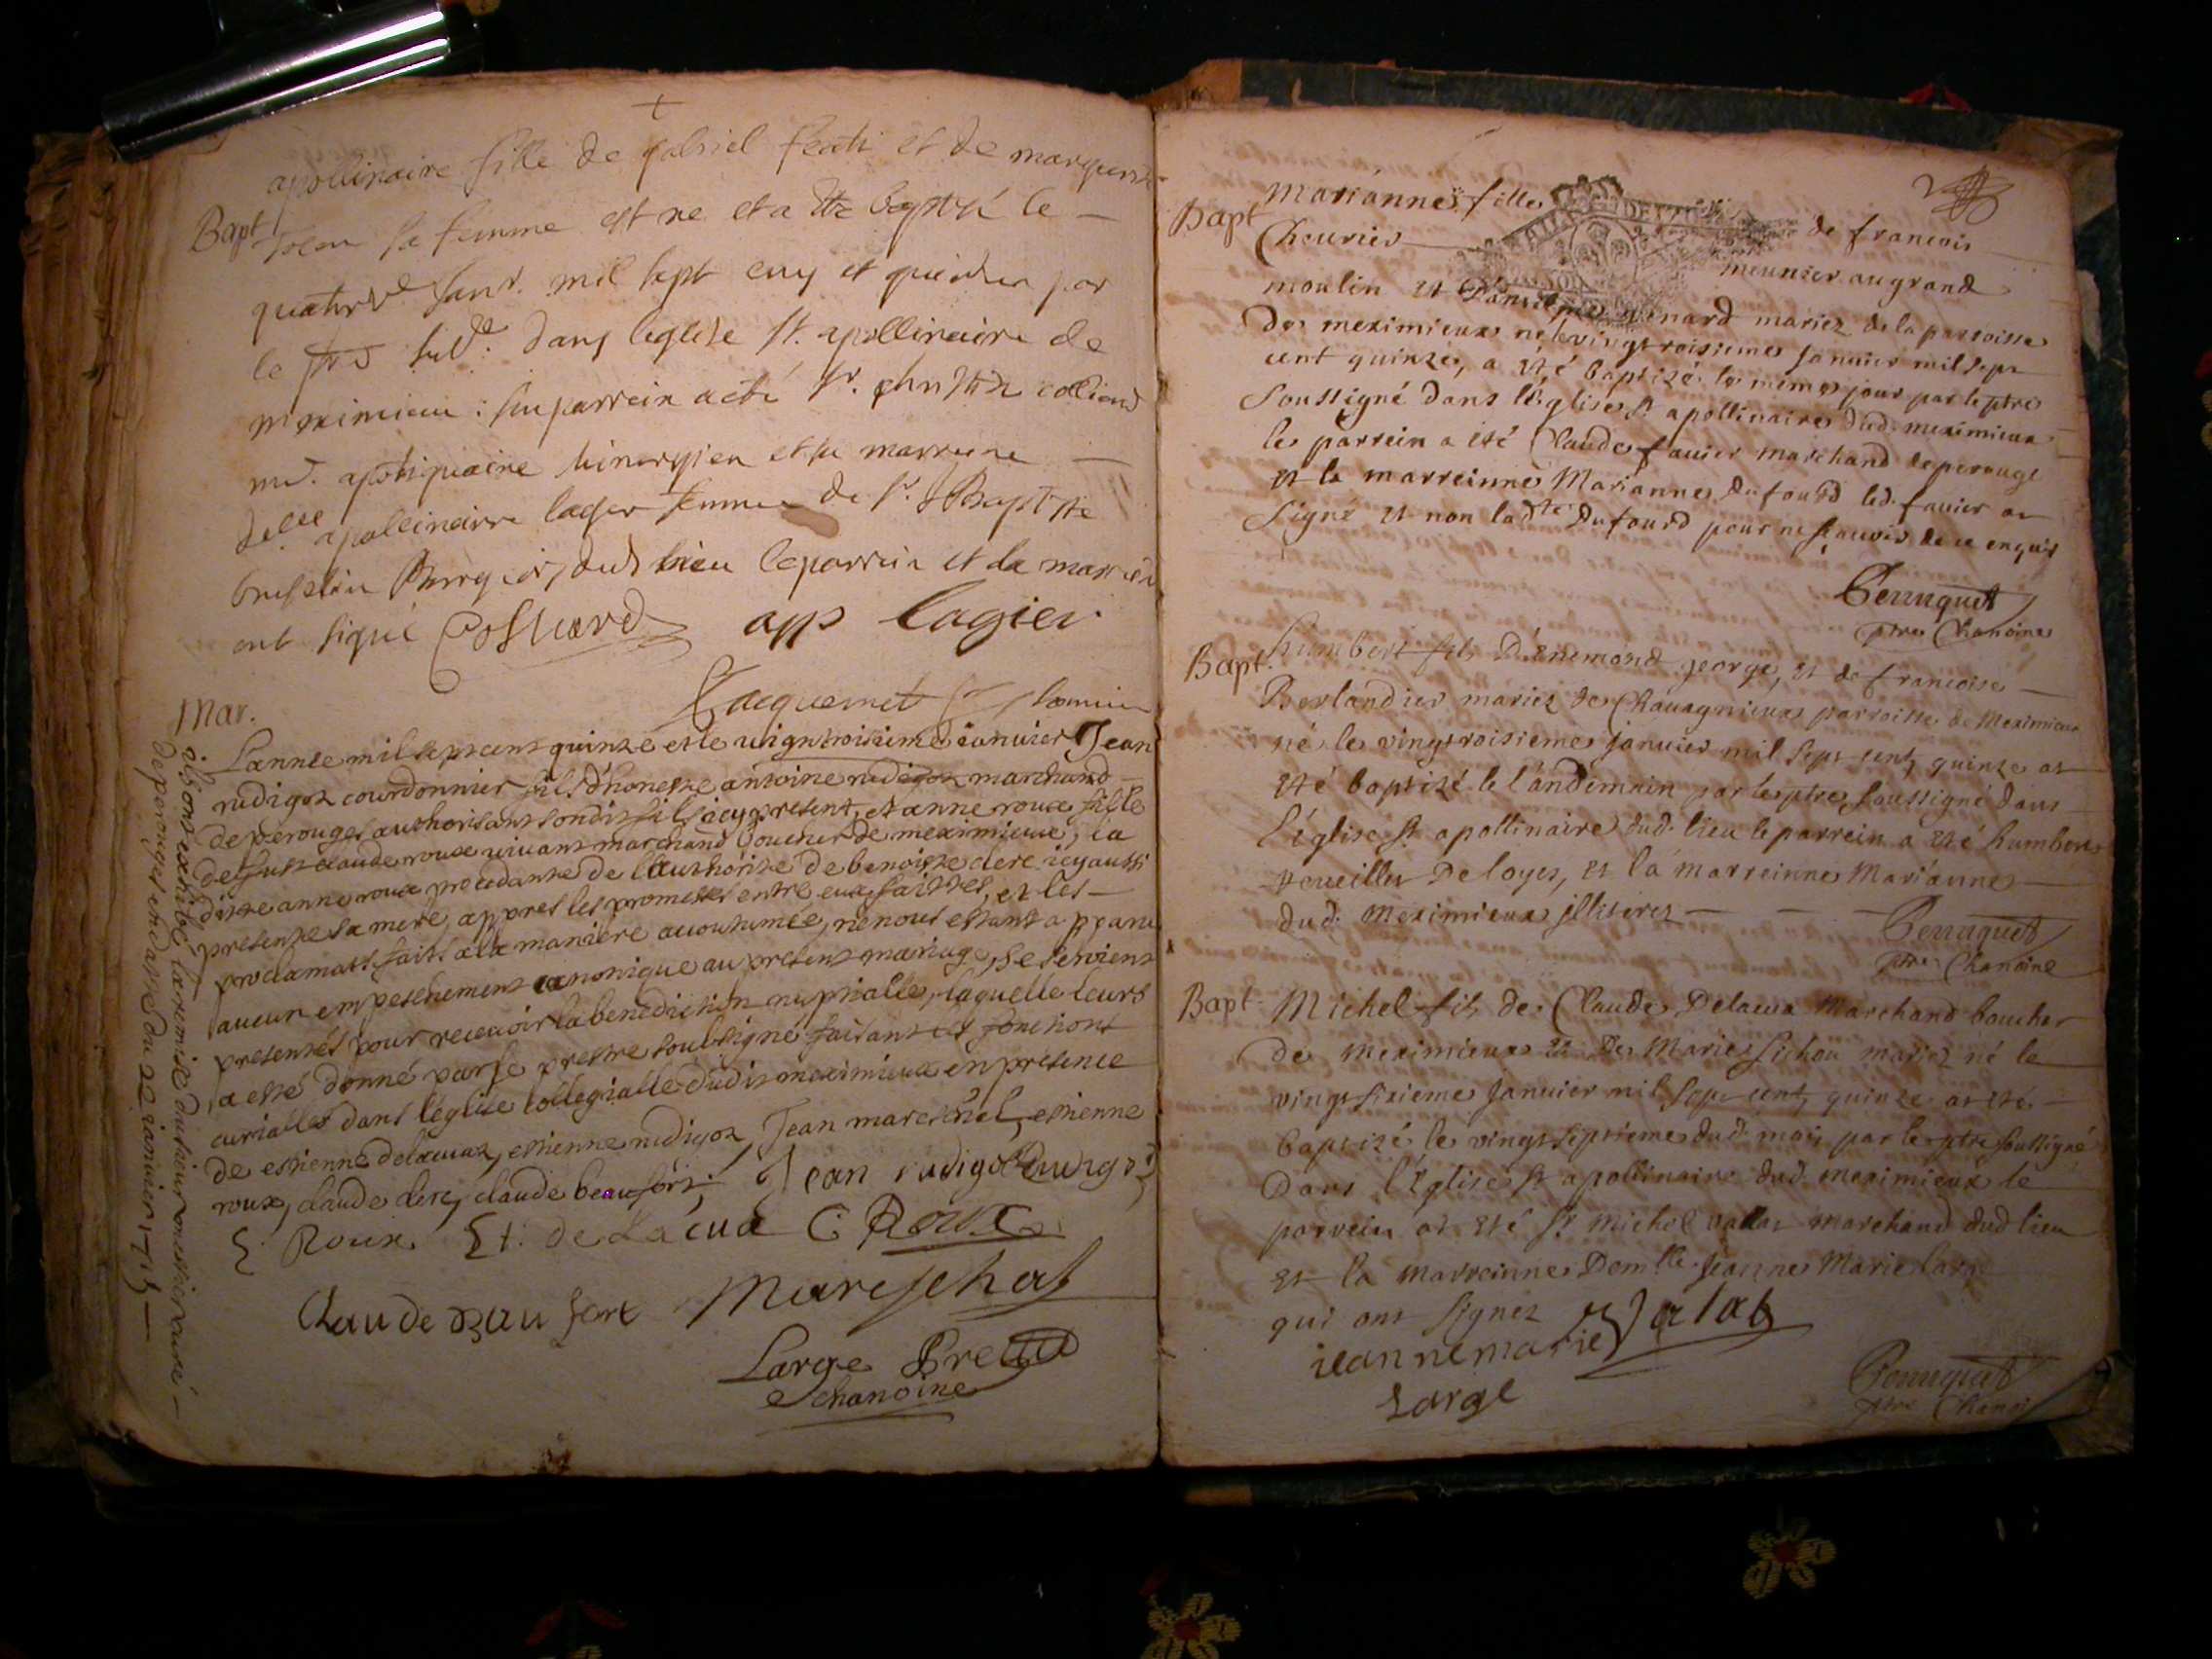 apollinaire fille de gabriel et de
Bapt sa femme est ne et a baptisé le
mil sept cens et quinze par
le dans leglise St. apollinaire de
meximieu : son parrein a été Sr. colliard
md. apotiquaire et sa marreine
delle apollinaire lager femme de Sr. J Baptiste
dud lieu le parrein et la
ont signé Colliard app lagier
Jacquemet
Mar.
Lannée mil sept cent quinze et le uigntroisieme ianuier Jean
rudigoz courdonnier fils d'honeste antoine rudigoz marchand
de perouges authorisant sondit fils icy present, et anne roux fille
de fust claude roux uiuant marchand boucher de meximieux, la
ditte anne roux procedante de l'authorité de benoiste clerc icy aussi
presente sa mere, appres les promesses entre eux faittes, et les
proclamats faits a la maniere acoutumée, ne nous estant apparu
aucun empeschement canonique au present mariage, se seroient
presentés pour receuoir la benediction nuptialle, laquelle leurs
a esté donné par le prestre soubsigné faisant les fonctions
curialles dans l'église collegialle dudit meximieux en presence
de estienne delacuaz, estienne rudigoz, Jean mareschal, estienne
roux, claude clerc, claude beaufort. Jean rudigoz
E: Roux Et: De Lacua C: Roux
Claude Baufort Mareschal
Large Pretre
chanoine
ils ont exhibé la remise du sieur messire curé
de perouges en datte du 22 ianuier 1715
Bapt Marianne fille de francois
Cheurier meunier au grand
moulin et mariez de la parroisse
de meximieux né le vingt troisieme januier mil sept
cent quinze, a été baptizé le meme jour par le ptre
soussigné dans l'église St apollinaire dud. meximieux
le parrein a été Claude fauier marchand de perouge
et la marreinne Marianne dufourd led. fauier at
signé et non ladte dufourd pour ne sçauoir de ce enquis
Perruquet
ptre Chanoine
Bapt. humbert fils D'enemond george, et de francoise
Berlandier mariez de Chauagnieux parroisse de Meximieux
né le vingt troisieme januier mil sept cent quinze at
été baptizé le l'andemain par le ptre soussigné dans
l'église St apollinaire dud. lieu le parrein a été humbert
verueillet De loyes, et la marreinne Marianne
dud. Meximieux jlliterez
Perruquet
ptre Chanoine
Bapt Michel fils de Claude Delacua Marchand boucher
de Meximieux et De Marie mariez né le
vingt sixieme Januier mil sept cent quinze at été
baptizé le vingt septieme dud. mois par le ptre soussigné
Dans l'Eglise St apollinaire dud. meximieux le
parrein at été Sr Michel vallat marchand dud lieu
et la marreinne Demlle Jeanne Marie large
qui ont signez Valat
ieanne marie
Large
Perruquet
ptre Chanoi